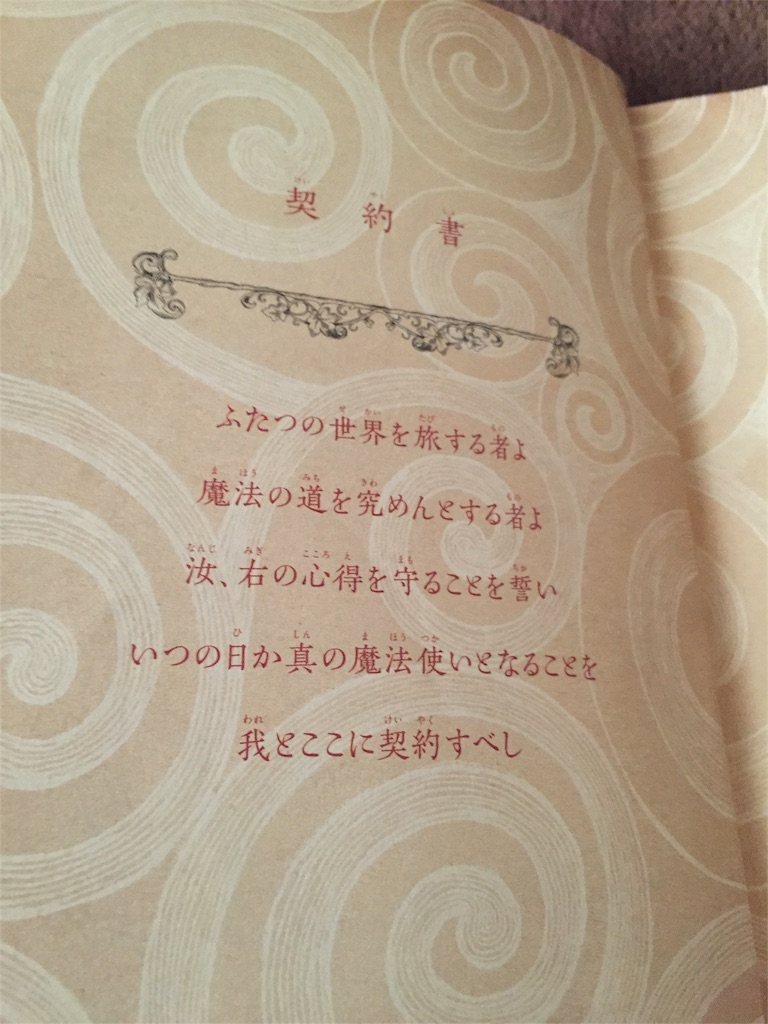 契約書
ふたつの世界を旅する者よ
魔法の道を究めんとする者よ
汝、右の心得を守ることを誓い
いつの日か真の魔法使いとなることを
我とここに契約すべし